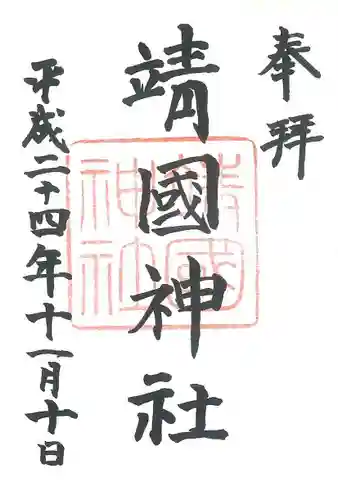 奉拝
靖國神社
靖國神社
平成二十四年十一月十日